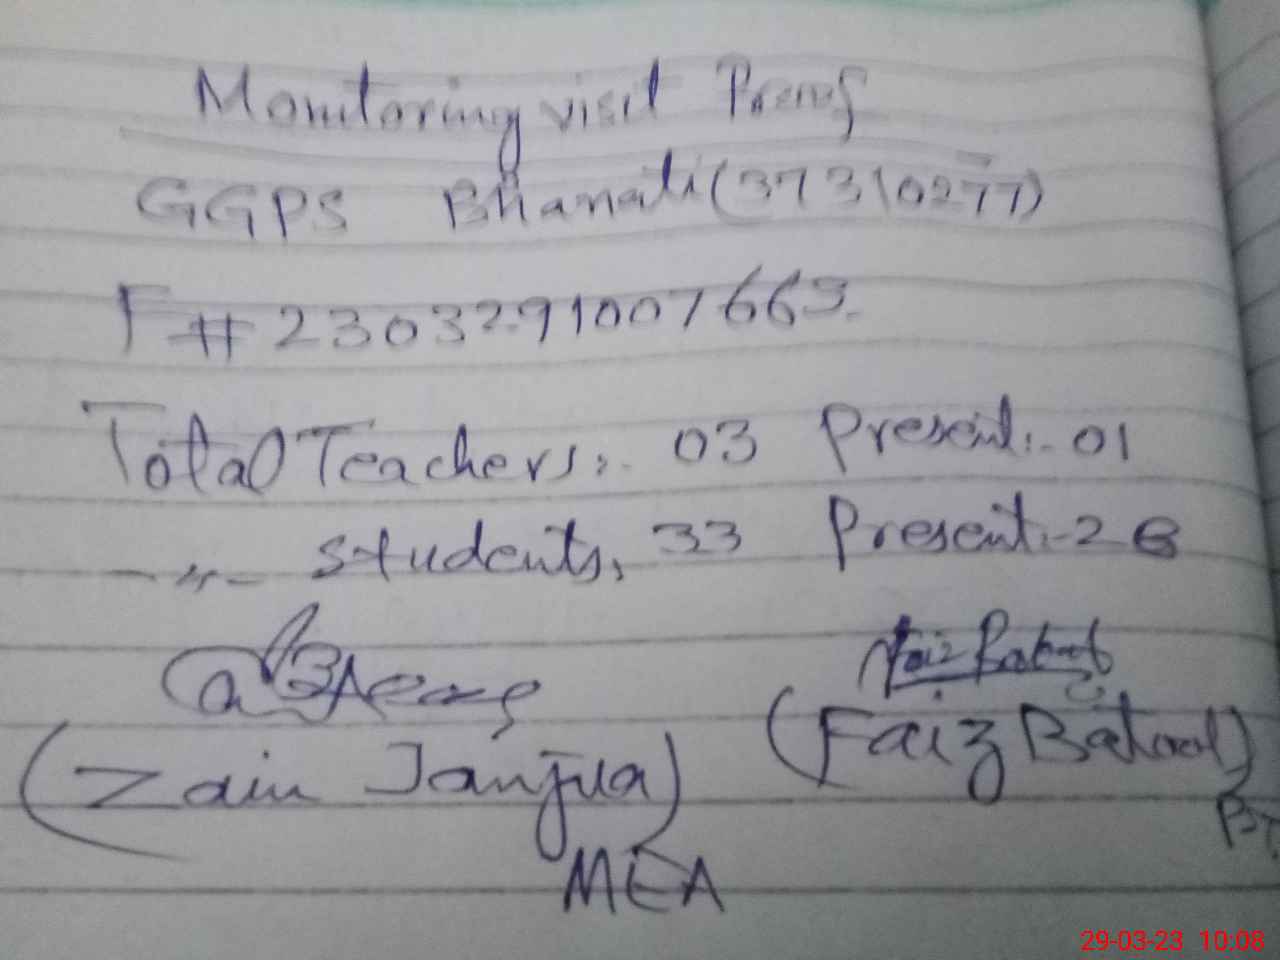 Monitoring visit Proof
GGPS Bhanati (37310277)
F# 2303291007663.
Total Teachers:- 03 Present:- 01
-〃- Students, 33 Present:- 26
Faiz Batool
(Zain Janjua) (Faiz Batool)
MEA
29-03-23 10:08